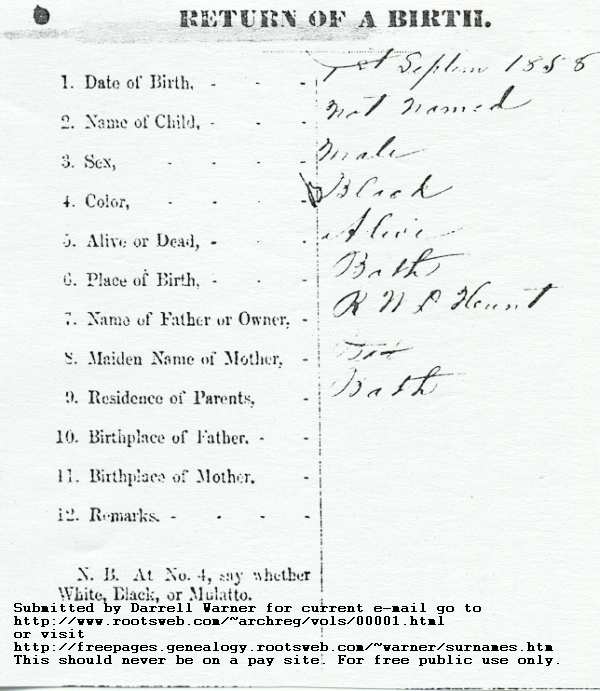 RETURN OF A BIRTH.
1. Date of Birth, - - - 1st Septem 1858
2. Name of Child, - - - Not named
3. Sex, - - - - Male
4. Color, - - - - Black
5. Alive or Dead, - - - Alive
6. Place of Birth, - - - Bath
7. Name of Father or Owner, - R
8. Maiden Name of Mother, -
9. Residence of Parents, - Bath
10. Birthplace of Father. - -
11. Birthplace of Mother. -
12. Remarks. - - - -
N. B. At No. 4, say whether
White, Black, or Mulatto.
Submitted by Darrell Warner for current e-mail go to
http://www.rootsweb.com/~archreg/vols/00001.html
or visit
http://freepages.genealogy.rootsweb.com/~warner/surnames.htm
This should never be on a pay site. For free public use only.